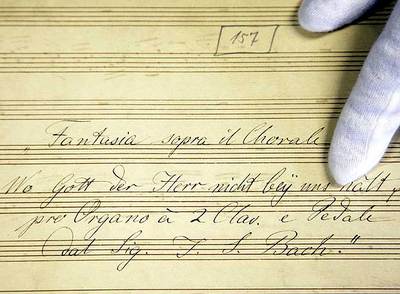 157
„Fantasia sopra il Chorale
Wo Gott der Herr nicht beÿ uns hält,
pro Organo à 2 Clav. e Pedale
dal Sig. J. S. Bach."